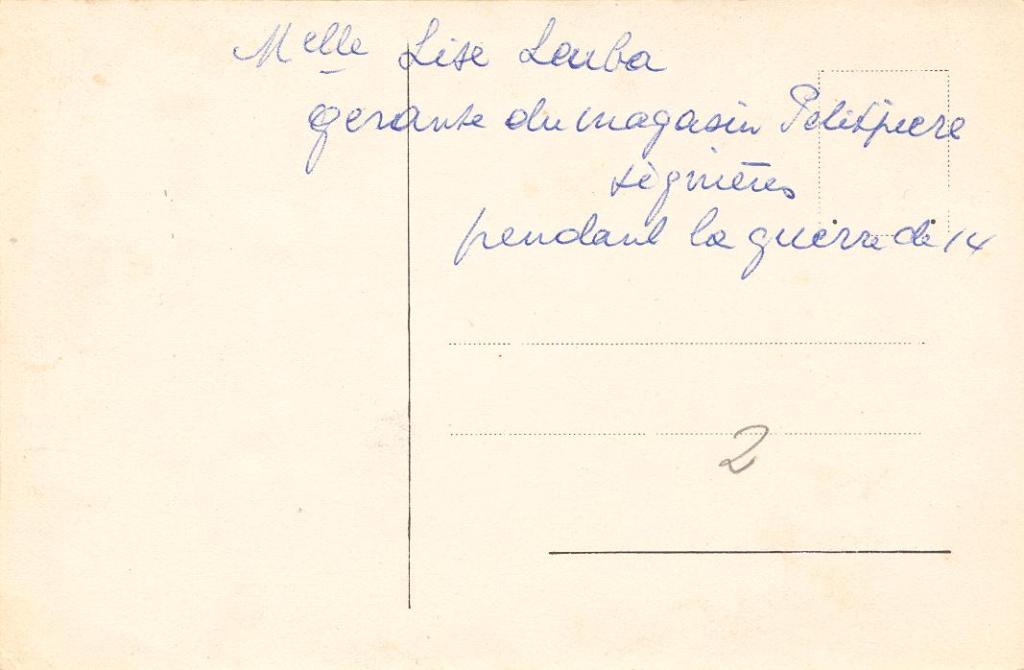 Melle Lise Lauba
gerante du magasin Petitpierre
pendant la guerre de 14
2